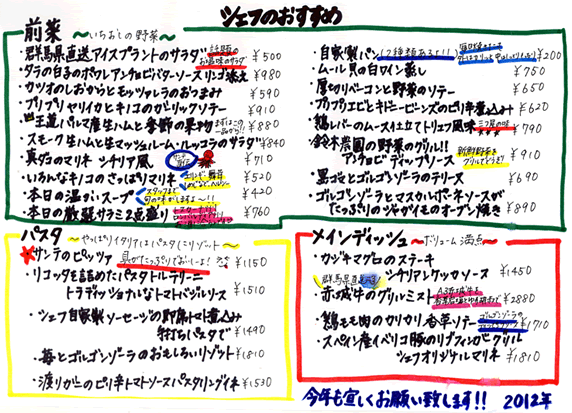 シェフのおすすめ
前菜 〜いちおしの野菜〜
・群馬県直送アイスプラントのサラダ 話題のお塩味のサラダ ¥500
・タラの白子のポワレアンチョビバターソースリンゴ添え ¥980
・カツオのしおからとモッツァレラのおつまみ ¥590
・プリプリヤリイカとキノコのガーリックソテー ¥910
王道パルマ産生ハムと季節の果物 ¥880
・スモーク生ハムと生マッシュルーム・ルッコラのサラダ ¥840
・真ダコのマリネ シチリア風 ¥710
・いろんなキノコのさっぱりマリネ ¥520
・本日の温かいスープ ¥420
・本日の厳選サラミ2点盛り ¥760
・自家製パン (2種類あるよ!!) ¥200
・ムール貝の白ワイン蒸し ¥750
・厚切りベーコンと野菜のソテー ¥650
・プリプリエビとキドニービーンズのピリ辛煮込み ¥620
・鶏レバーのムース仕立てトリュフ風味 ¥790
・鈴木農園の野菜のグリル!!
アンチョビディップソース ¥910
・黒ゴマとゴルゴンゾーラのテリーヌ ¥690
・ゴルゴンゾーラとマスカルポーネソースが
たっぷりのジャガイモのオーブン焼き ¥890
パスタ 〜やっぱりイタリアはパスタ(ニリゾット〜
サンテのピッツァ 具がたっぷりでおいしーよ! ¥1150
・リコッタを詰めたパスタトルテリーニ
トラディッショナルなトマトバジルソース ¥1510
・シェフ自家製ソーセージの野菜トマト煮込み
手打ちパスタで ¥1490
・苺とゴルゴンゾーラのおもしろいリゾット ¥1810
・渡りガニのピリ辛トマトソースパスタリングイネ ¥1530
メインディッシュ 〜ボリューム満点〜
・カジキマグロのステーキ
シチリアンケッカソース ¥1450
群馬県直送
・赤城牛のグリルミスト ¥2880
・鶏モモ肉のカリカリ香草ソテー ¥1710
・スペイン産イベリコ豚のリブフィンガーグリル
シェフオリジナルマリネ ¥1810
今年も宜しくお願い致します!! 2012年